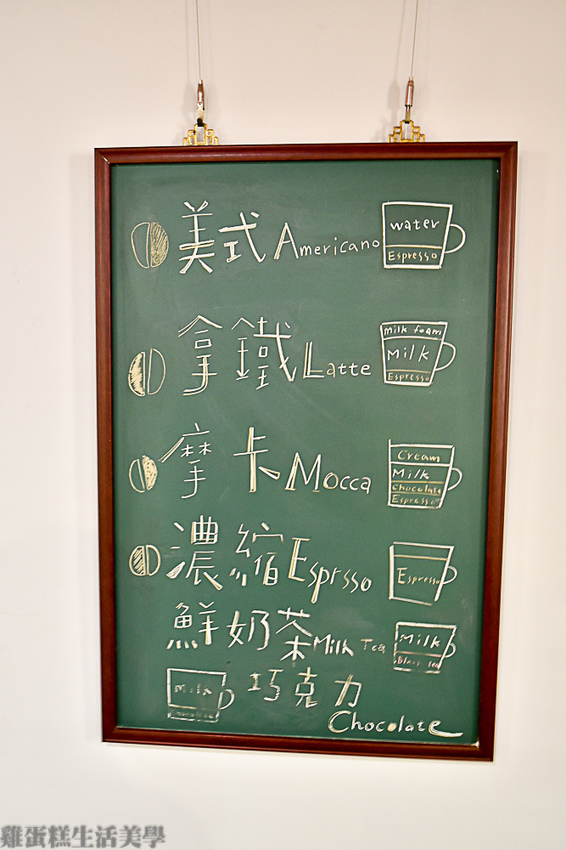 美式 Americano
water
Espresso
拿鐵 Latte
milk foam
Milk
Espresso
摩卡 Mocca
Cream
Milk
Chocolate
Espresso
濃縮 Esprsso
Espresso
鮮奶茶 Milk Tea
Milk
Black tea
巧克力
Milk
Chocolate
Chocolate
雞蛋糕生活美學